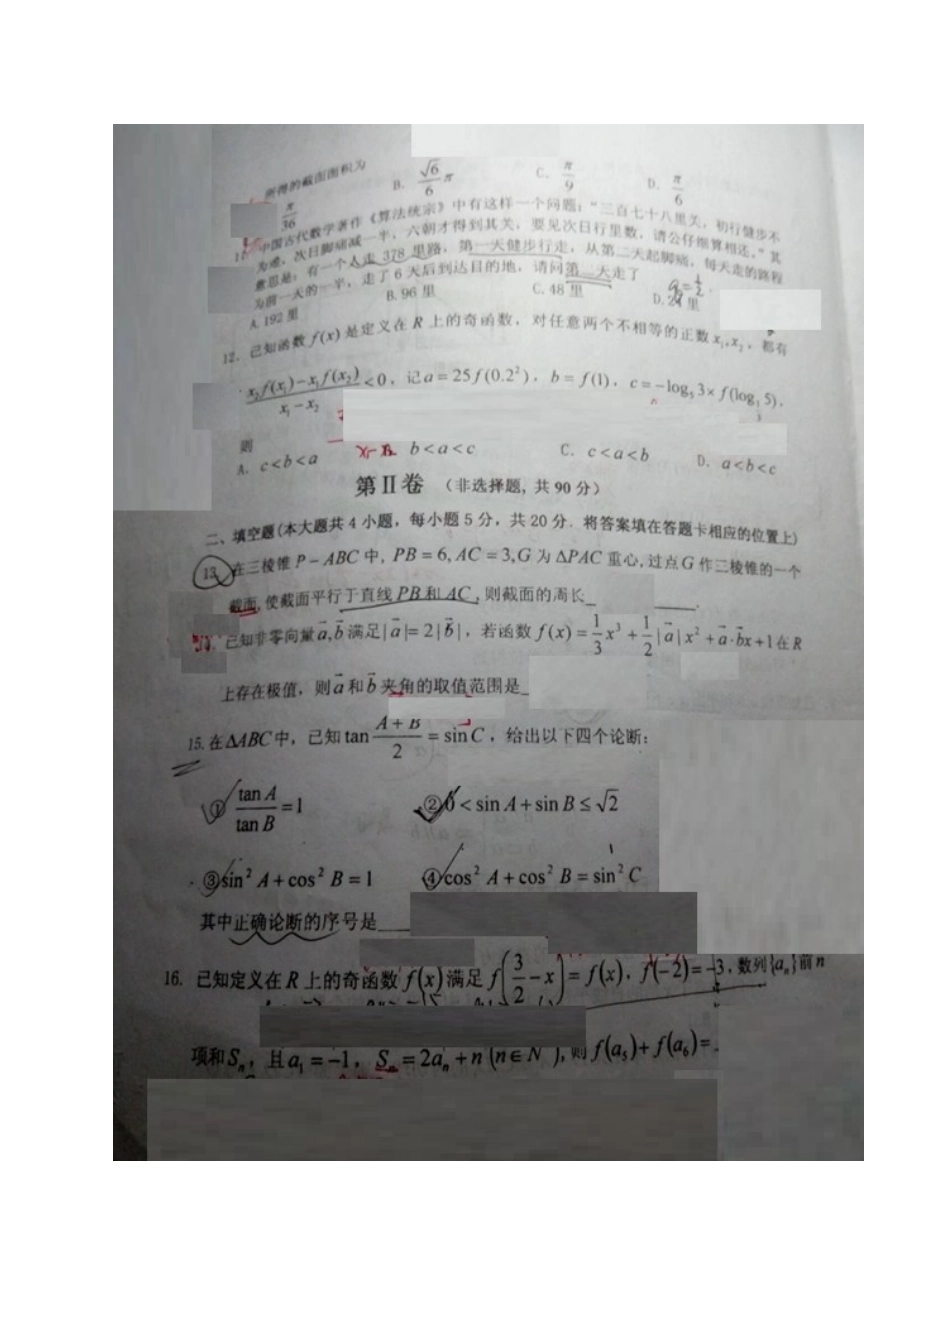 所得的截面面积为
π/36 B. √6/6 π C. π/9 D. π/6
中国古代数学著作《算法统宗》中有这样一个问题:“三百七十八里关,初行健步不
为难,次日脚痛减一半,六朝才得到其关,要见次日行里数,请公仔细算相还。”其
意思是:有一个人走 378 里路,第一天健步行走,从第二天起脚痛,每天走的路程
为前一天的一半,走了 6 天后到达目的地,请问第二天走了
A. 192 里 B. 96 里 C. 48 里 D. 24 里
12. 已知函数 f(x) 是定义在 R 上的奇函数,对任意两个不相等的正数 x₁,x₂,都有
(x₂f(x₁)-x₁f(x₂))/(x₁-x₂)<0,记a=25f(0.2²),b=f(1),c=-log₅3×f(log_{1/3}5),
则
A. c<b<a b<a<c C. c<a<b D. a<b<c
第Ⅱ卷 (非选择题, 共 90 分)
二、填空题(本大题共 4 小题,每小题 5 分,共 20 分. 将答案填在答题卡相应的位置上)
13. 在三棱锥 P-ABC 中, PB=6, AC=3,G 为 ΔPAC 重心,过点 G 作三棱锥的一个
截面,使截面平行于直线 PB 和 AC,则截面的周长
14. 已知非零向量a,b满足|a|=2|b|,若函数 f(x)=1/3x³+1/2|a|x²+a·bx+1在R
上存在极值,则a和b夹角的取值范围是
15. 在ΔABC中,已知 tan (A+B)/2 = sin C,给出以下四个论断:
① tan A/tan B=1 ② 0<sin A+sin B≤√2
③ sin² A+cos² B=1 ④ cos² A+cos² B=sin² C
其中正确论断的序号是
16. 已知定义在 R 上的奇函数 f(x)满足 f(3/2-x)=f(x),f(-2)=-3,数列{aₙ}前 n
项和 Sₙ,且 a₁=-1,Sₙ=2aₙ+n(n∈N ),则 f(a₅)+f(a₆)=